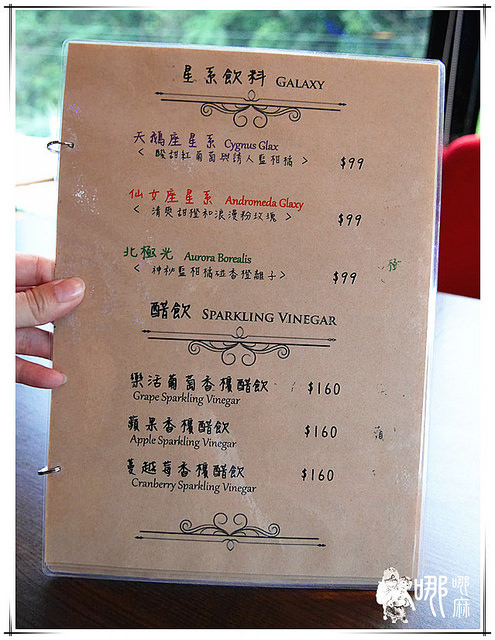 星系飲料 GALAXY
天鵝座星系 Cygnus Glax
< 酸甜紅葡萄與誘人藍柑橘 > $99
仙女座星系 Andromeda Glaxy
< 清爽甜橙和浪漫粉玫瑰 > $99
北極光 Aurora Borealis
< 神秘藍柑橘碰香橙離子 > $99
醋飲 SPARKLING VINEGAR
樂活葡萄香檳醋飲 $160
Grape Sparkling Vinegar
蘋果香檳醋飲 $160
Apple Sparkling Vinegar
蔓越莓香檳醋飲 $160
Cranberry Sparkling Vinegar
哪哪麻